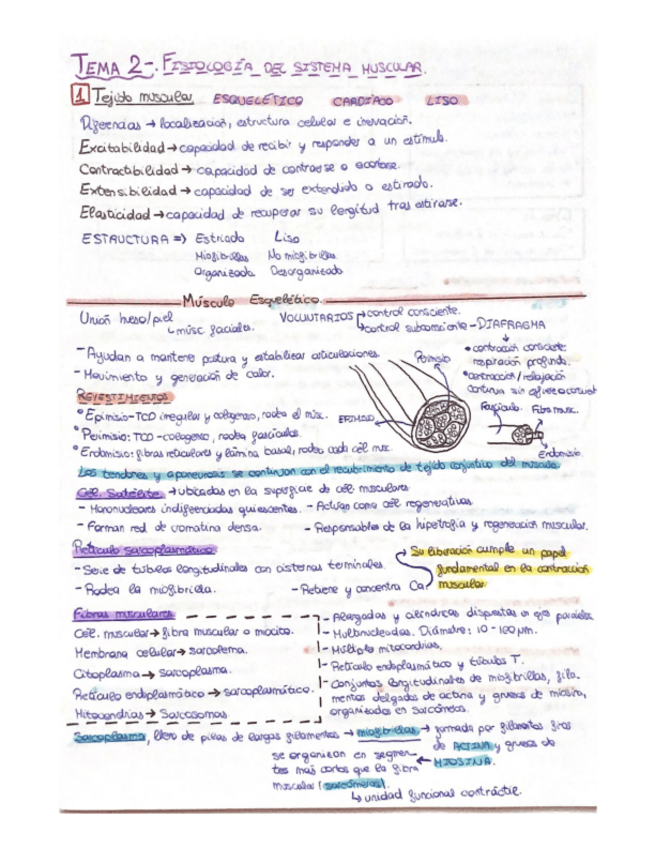 TEMA 2-. FISIOLOGÍA DEL SISTEMA MUSCULAR.
1 Tejido muscular ESQUELÉTICO CARDÍACO LISO
Diferencias → localización, estructura celular e inervación.
Excitabilidad → capacidad de recibir y responder a un estímulo.
Contractibilidad → capacidad de contraerse o acortarse.
Extensibilidad → capacidad de ser extendido o estirado.
Elasticidad → capacidad de recuperar su longitud tras estirarse.
ESTRUCTURA => Estriado Liso
Miofibrillas No miofibrillas
Organizado Desorganizado
Músculo Esquelético.
Unión hueso/piel
músc. faciales.
VOLUNTARIOS control consciente.
control subconsciente - DIAFRAGMA
- Ayudan a mantener postura y estabilizar articulaciones.
- Movimiento y generación de calor.
• contracción consciente:
respiración profunda.
• contracción/relajación
continua sin
REVESTIMIENTOS
• Epimisio - TCD irregular y colagenoso, rodea el músc.
• Perimisio: TCD - colagenoso, rodea fascículos.
• Endomisio: fibras reticulares y lámina basal, rodea cada cél. musc.
Perimisio
EPIMISIO
Fascículo. Fibra musc.
Endomisio
Los tendones y aponeurosis se continúan con el recubrimiento de tejido conjuntivo del músculo
Cél. Satélite → ubicadas en la superficie de cél. musculares
- Mononucleares indiferenciadas quiescentes. - Actúan como cél. regenerativas.
- Forman red de cromatina densa. - Responsables de la hipertrofia y regeneración muscular.
Retículo sarcoplasmático
- Serie de túbulos longitudinales con cisternas terminales.
- Rodea la miofibrilla. - Retiene y concentra Ca
Su liberación cumple un papel
fundamental en la contracción
muscular
Fibras musculares
Cél. muscular → fibra muscular o miocito.
Membrana celular → sarcolema.
Citoplasma → sarcoplasma.
Retículo endoplasmático → sarcoplasmático.
Mitocondrias → Sarcosomas
- Alargadas y cilíndricas dispuestas en ejes paralelos
- Multinucleadas. Diámetro: 10 - 100 µm.
- Múltiples mitocondrias.
- Retículo endoplasmático y túbulos T.
- Conjuntos longitudinales de miofibrillas, fila-
mentos delgados de actina y gruesos de miosina,
organizados en sarcómeros.
Sarcoplasma, lleno de pilas de largos filamentos → miofibrillas → formada por filamentos finos
de ACTINA y gruesos de
MIOSINA.
se organizan en segmen-
tos más cortos que la fibra
muscular (sarcómeros).
unidad funcional contráctil.